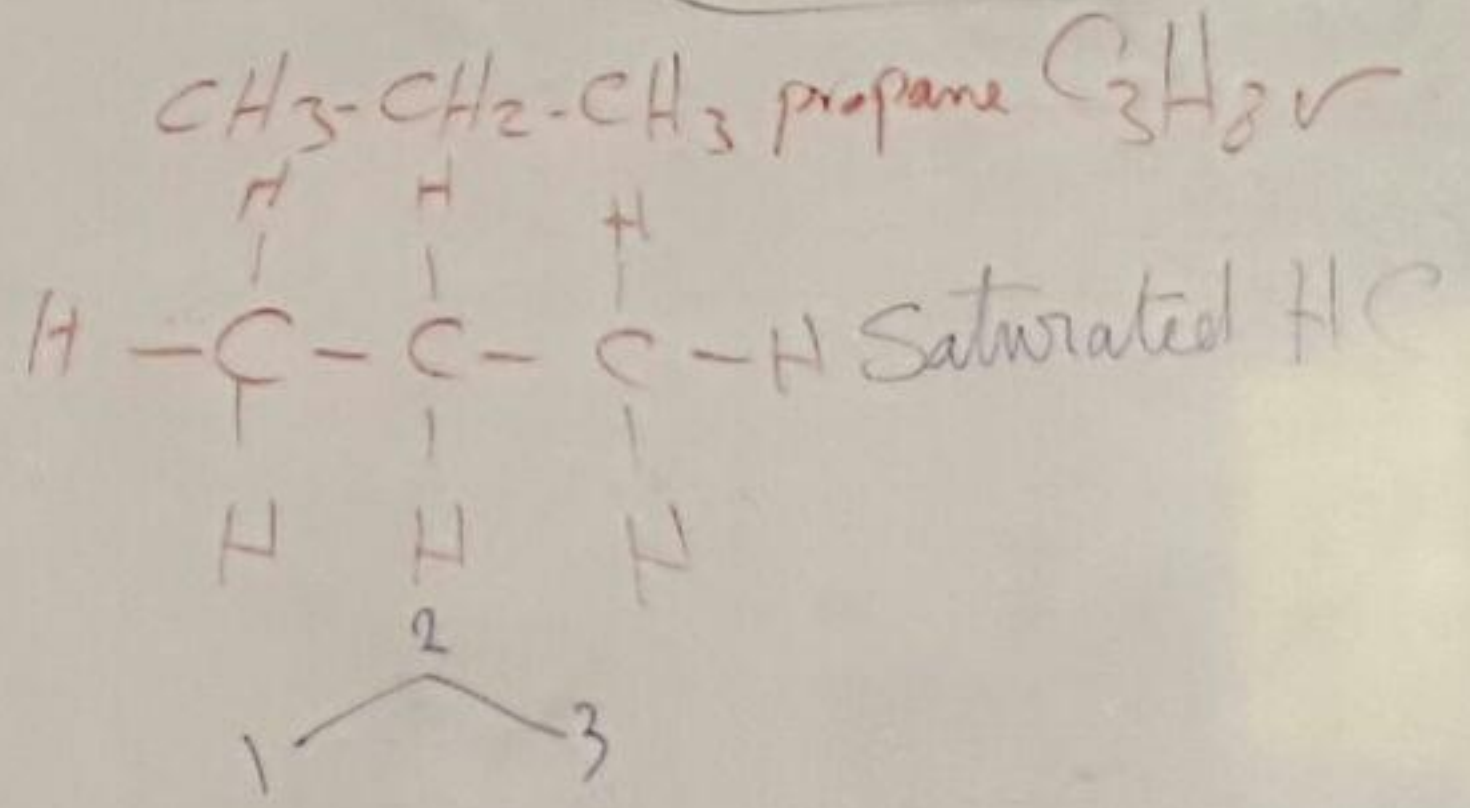 CH3-CH2-CH3 propane C3H8 ✓
H H H
H-C-C-C-H Saturated HC
H H H
2
1 3